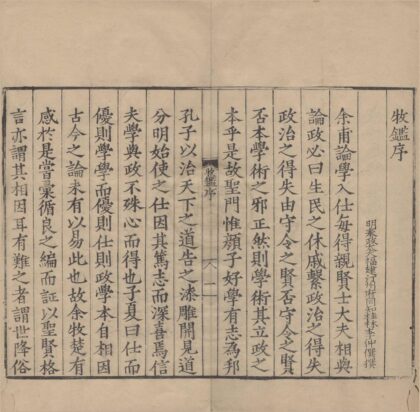 牧鑑序
明奉政大夫福建汀州府同知桂林李仲僎撰
余甫論學入仕每得親賢士大夫相與
論政必曰生民之休戚繫政治之得失
政治之得失由守令之賢否守令之賢
否本學術之邪正然則學術其立政之
本乎是故聖門惟顏子好學有志為邦
牧鑑序 一
孔子以治天下之道告之漆雕開見道
分明始使之仕因其篤志而深喜焉信
夫學與政不殊心而得也子夏曰仕而
優則學學而優則仕則政學本自相因
古今之論未有以易此也故余牧楚有
感於是嘗彙循良之編而証以聖賢格
言亦謂其相因耳有難之者謂世降俗